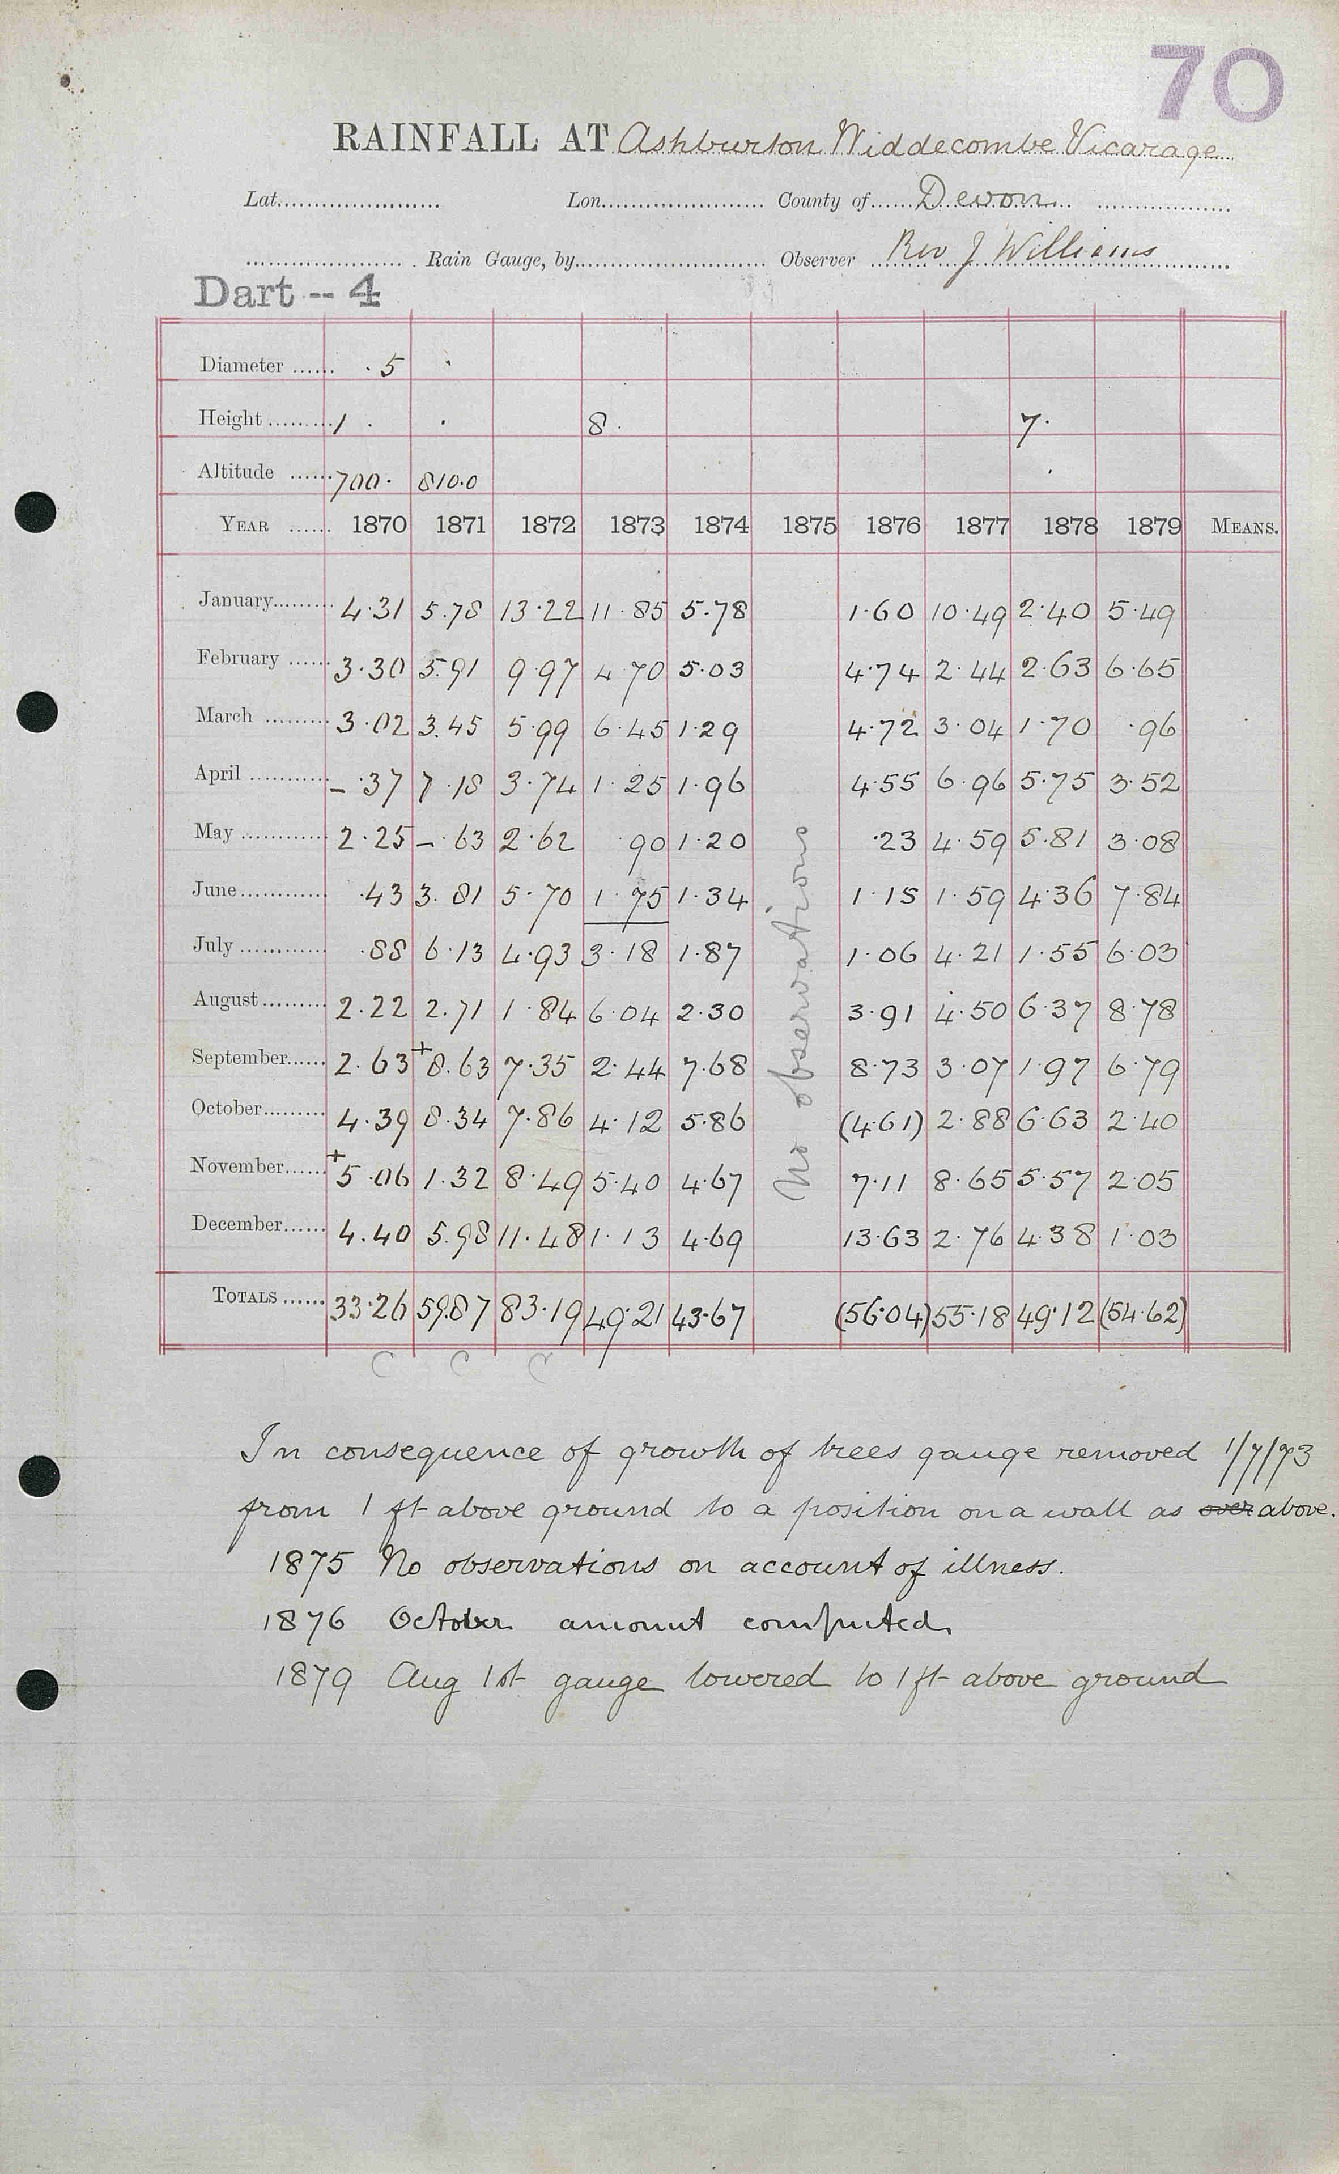 70
RAINFALL AT Ashburton Widdecombe Vicarage
Lat. Lon. County of Devon
Rain Gauge, by Observer Rev J Williams
Dart -- 4
Diameter . 5
Height 1 . 8. 7.
Altitude 700. 810.0
YEAR 1870 1871 1872 1873 1874 1875 1876 1877 1878 1879 MEANS.
January 4.31 5.78 13.22 11.85 5.78 1.60 10.49 2.40 5.49
February 3.30 5.91 9.97 4.70 5.03 4.74 2.44 2.63 6.65
March 3.02 3.45 5.99 6.45 1.29 4.72 3.04 1.70 .96
April - .37 7.18 3.74 1.25 1.96 4.55 6.96 5.75 3.52
May 2.25 - .63 2.62 .90 1.20 .23 4.59 5.81 3.08
June .43 3.81 5.70 1.75 1.34 1.15 1.59 4.36 7.84
July .88 6.13 4.93 3.18 1.87 1.06 4.21 1.55 6.03
August 2.22 2.71 1.84 6.04 2.30 3.91 4.50 6.37 8.78
September 2.63 +8.63 7.35 2.44 7.68 8.73 3.07 1.97 6.79
October 4.39 8.34 7.86 4.12 5.86 (4.61) 2.88 6.63 2.40
November +5.06 1.32 8.49 5.40 4.67 7.11 8.65 5.57 2.05
December 4.40 5.98 11.48 1.13 4.69 13.63 2.76 4.38 1.03
No observations
TOTALS 33.26 59.87 83.19 49.21 43.67 (56.04) 55.18 49.12 (54.62)
In consequence of growth of trees gauge removed 1/7/73
from 1 ft above ground to a position on a wall as over above.
1875 No observations on account of illness.
1876 October amount computed.
1879 Aug 1st gauge lowered to 1 ft above ground